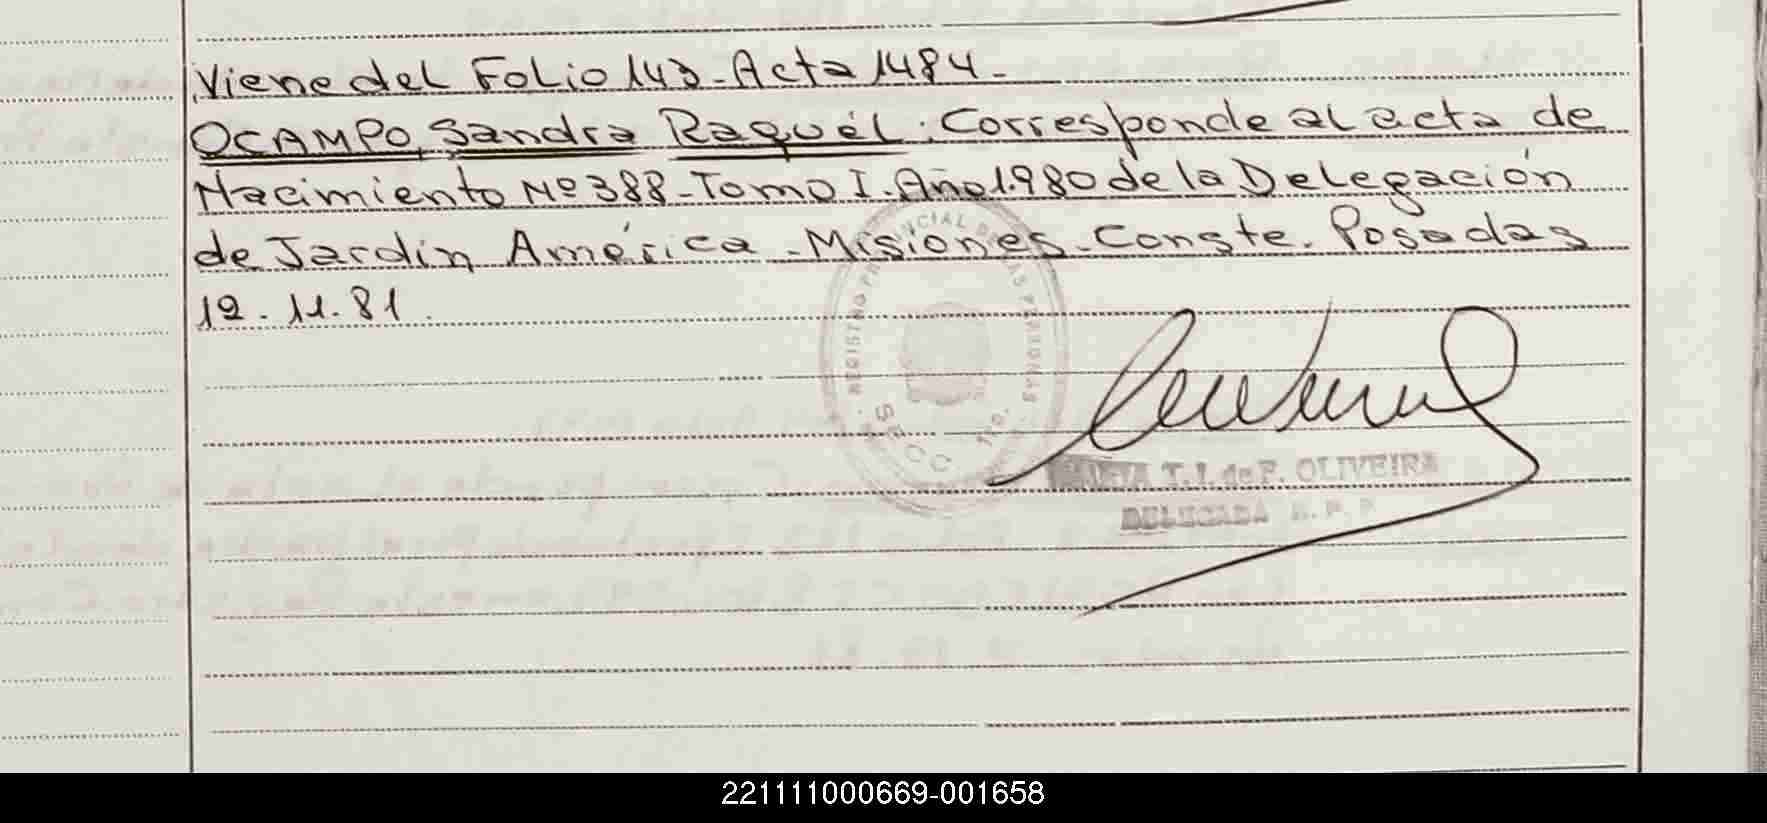 Viene del Folio 143 - Acta 1484 -
OCAMPO, Sandra Raquél: Corresponde al acta de
Nacimiento Nº 388 - Tomo I. Año 1.980 de la Delegación
de Jardín América - Misiones - Conste. Posadas
12 . 11 . 81 .
REGISTRO PROVINCIAL DE LAS PERSONAS
SECC. 1ro.
T. I. de F. OLIVEIRA
DELEGADA R. P. P.
221111000669-001658